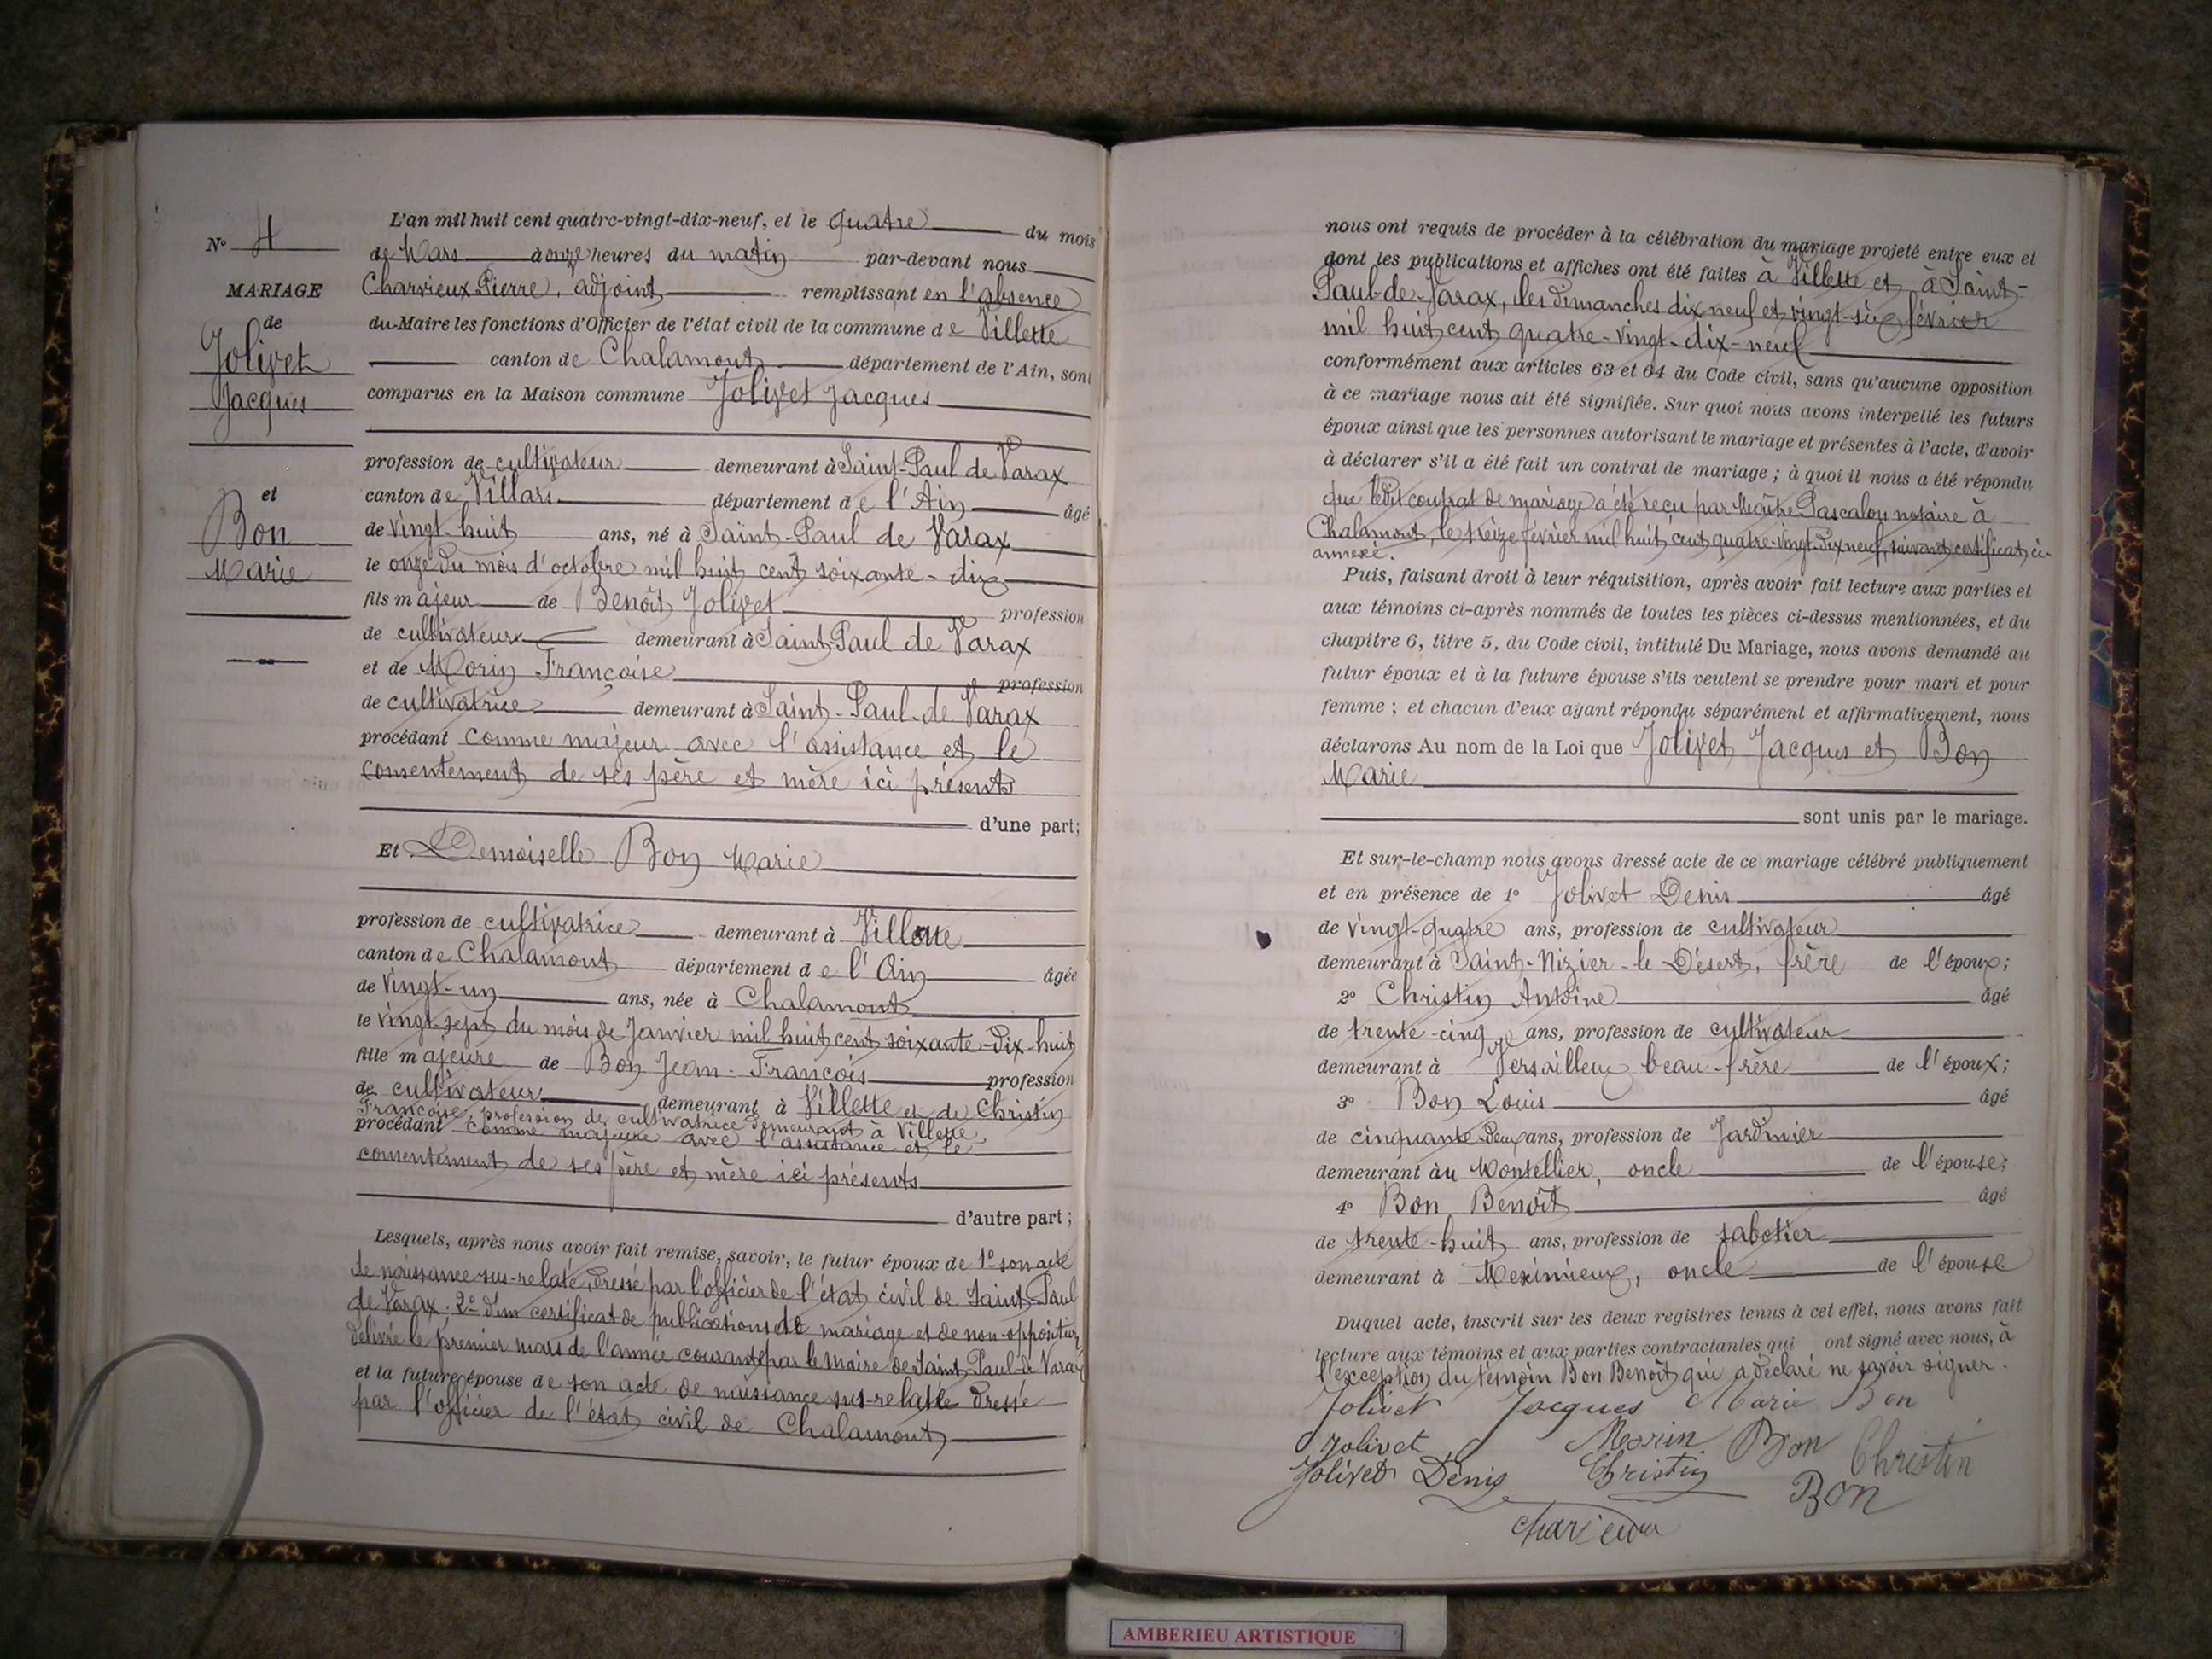 N° 4
MARIAGE
de
Jolivet
Jacques
et
Bon
Marie
L'an mil huit cent quatre-vingt-dix-neuf, et le quatre du mois
de Mars à onze heures du matin par-devant nous
Charvieux Pierre, adjoint remplissant en l'absence
du Maire les fonctions d'Officier de l'état civil de la commune de Villette
canton de Chalamont département de l'Ain, sont
comparus en la Maison commune Jolivet Jacques
profession de cultivateur demeurant à Saint-Paul de Varax
canton de Villars département de l'Ain âgé
de vingt-huit ans, né à Saint-Paul de Varax
le onze du mois d'octobre mil huit cent soixante-dix
fils majeur de Benoît Jolivet profession
de cultivateur demeurant à Saint-Paul de Varax
et de Morin Françoise profession
de cultivatrice demeurant à Saint-Paul-de Varax
procédant comme majeur avec l'assistance et le
consentement de ses père et mère ici présents
d'une part;
Et Demoiselle Bon Marie
profession de cultivatrice demeurant à Villette
canton de Chalamont département de l'Ain âgée
de vingt-un ans, née à Chalamont
le vingt-sept du mois de Janvier mil huit cent soixante-dix-huit
fille majeure de Bon Jean-François profession
de cultivateur demeurant à Villette et de Christin
Françoise, profession de cultivatrice demeurant à Villette,
procédant comme majeure avec l'assistance et le
consentement de ses père et mère ici présents
d'autre part;
Lesquels, après nous avoir fait remise, savoir, le futur époux de 1° son acte
de naissance sus-relaté, dressé par l'officier de l'état civil de Saint-Paul
de Varax; 2° d'un certificat de publications de mariage et de non-opposition
délivré le premier mars de l'année courante par le Maire de Saint-Paul-de Varax
et la future épouse de son acte de naissance sus-relaté dressé
par l'officier de l'état civil de Chalamont
nous ont requis de procéder à la célébration du mariage projeté entre eux et
dont les publications et affiches ont été faites à Villette et à Saint-
Paul-de-Varax, les dimanches dix-neuf et vingt-six février
mil huit cent quatre-vingt-dix-neuf
conformément aux articles 63 et 64 du Code civil, sans qu'aucune opposition
à ce mariage nous ait été signifiée. Sur quoi nous avons interpellé les futurs
époux ainsi que les personnes autorisant le mariage et présentes à l'acte, d'avoir
à déclarer s'il a été fait un contrat de mariage; à quoi il nous a été répondu
que ledit contrat de mariage a été reçu par Maître Pascalon notaire à
Chalamont, le treize février mil huit cent quatre-vingt-dix neuf, suivant certificat ci-
annexé.
Puis, faisant droit à leur réquisition, après avoir fait lecture aux parties et
aux témoins ci-après nommés de toutes les pièces ci-dessus mentionnées, et du
chapitre 6, titre 5, du Code civil, intitulé Du Mariage, nous avons demandé au
futur époux et à la future épouse s'ils veulent se prendre pour mari et pour
femme; et chacun d'eux ayant répondu séparément et affirmativement, nous
déclarons Au nom de la Loi que Jolivet Jacques et Bon
Marie
sont unis par le mariage.
Et sur-le-champ nous avons dressé acte de ce mariage célébré publiquement
et en présence de 1° Jolivet Denis âgé
de vingt-quatre ans, profession de cultivateur
demeurant à Saint-Nizier-le Désert, frère de l'époux;
2° Christin Antoine âgé
de trente-cinq ans, profession de cultivateur
demeurant à Versailleux beau-frère de l'époux;
3° Bon Louis âgé
de cinquante-deux ans, profession de Jardinier
demeurant au Montellier, oncle de l'épouse;
4° Bon Benoît âgé
de trente-huit ans, profession de sabotier
demeurant à Meximieux, oncle de l'épouse
Duquel acte, inscrit sur les deux registres tenus à cet effet, nous avons fait
lecture aux témoins et aux parties contractantes qui ont signé avec nous, à
l'exception du témoin Bon Benoît qui a déclaré ne savoir signer.
Jolivet Jacques Marie Bon
Jolivet Morin Bon Christin
Jolivet Denis Christin Bon
Charvieux
AMBERIEU ARTISTIQUE